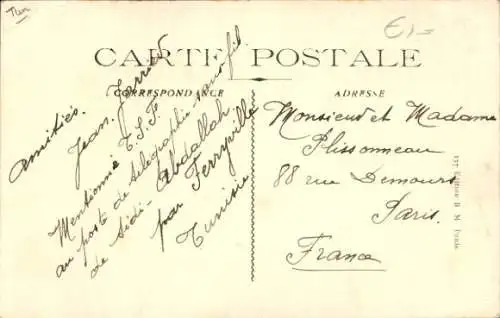 Tun
E1-
CARTE POSTALE
CORRESPONDANCE
ADRESSE
Amitiés.
Jean
Mentionné T.S.F.
au poste de télégraphie sans fil
de Sidi-Abdallah
par Ferryville
Tunisie
Monsieur et Madame
Plissonneau
88 rue Demours
Paris.
France
157 Edition B. M. Tunis.